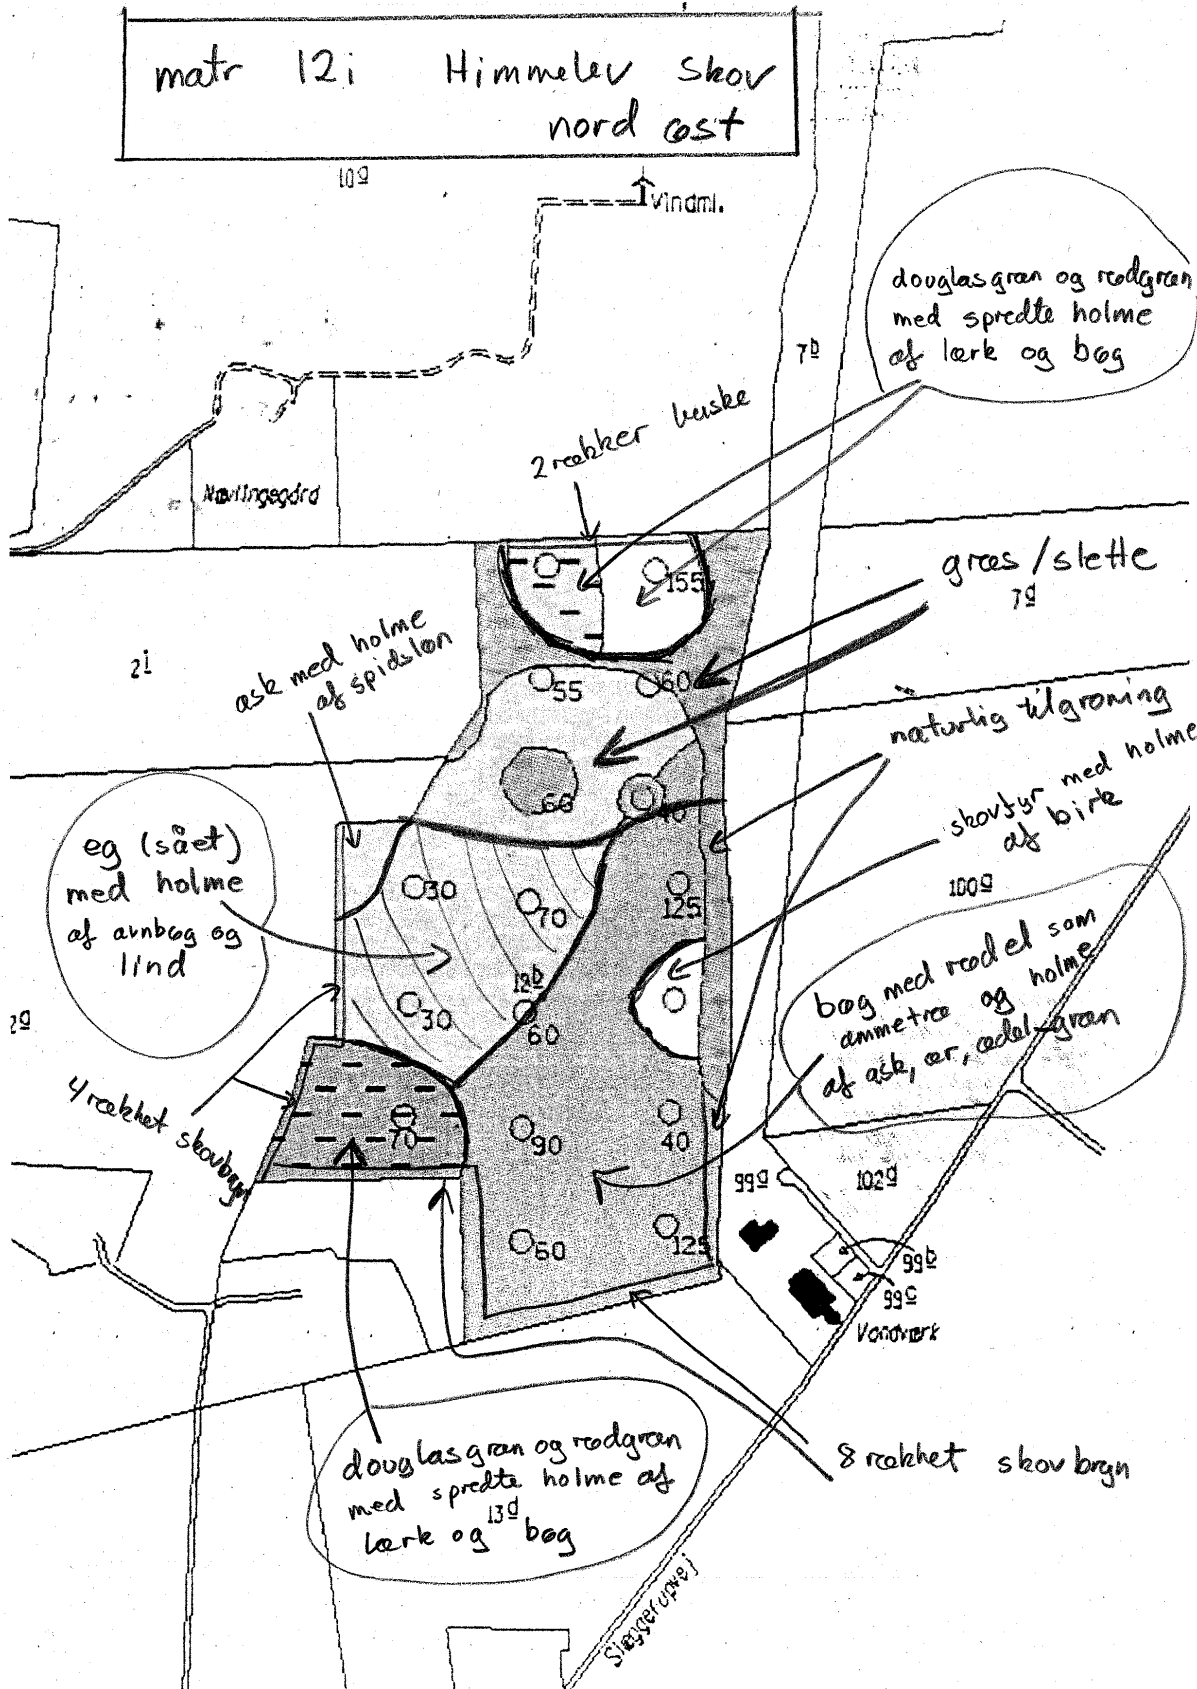 matr 12i Himmelev Skov
nord øst
10g
Vindml.
douglasgran og rødgran
med spredte holme
af lærk og bøg
7b
2 rækker buske
Nævlingegård
155
græs/slette
7d
2i
ask med holme
af spidsløn
55
60
naturlig tilgroning
skovfyr med holme
af birk
66
40
eg (sået)
med holme
af avnbøg og
lind
30
70
125
100g
bøg med rødel som
ammetræ og holme
af ask, ær, ædel-gran
12b
30
60
2g
4 rækket skovbryn
70
90
40
99g
102g
60
125
99b
99c
Vandværk
douglasgran og rødgran
med spredte holme af
13d
lærk og bøg
8 rækket skovbryn
Slæggerupvej